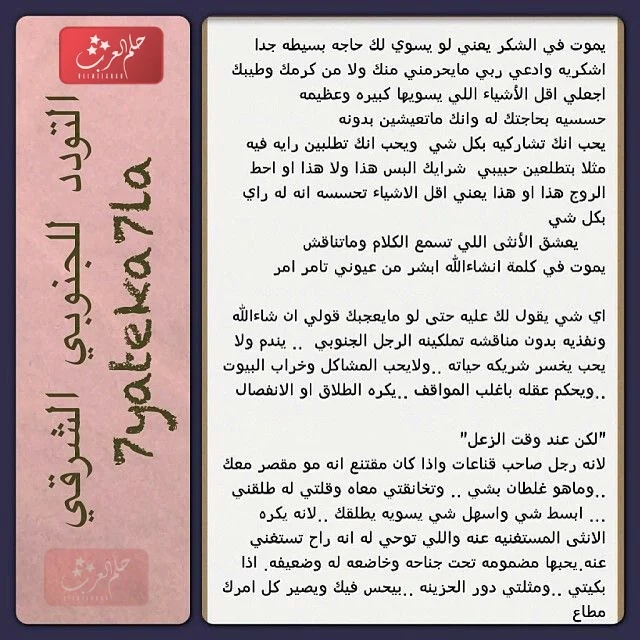 يموت في الشكر يعني لو يسوي لك حاجه بسيطه جدا
اشكريه وادعي ربي مايحرمني منك ولا من كرمك وطيبك
اجعلي اقل الأشياء اللي يسويها كبيره وعظيمه
حسسيه بحاجتك له وانك ماتعيشين بدونه
يحب انك تشاركيه بكل شي ويحب انك تطلبين رايه فيه
مثلا بتطلعين حبيبي شرايك البس هذا ولا هذا او احط
الروج هذا او هذا يعني اقل الاشياء تحسسه انه له راي
بكل شي
يعشق الأنثى اللي تسمع الكلام وماتناقش
يموت في كلمة انشاءالله ابشر من عيوني تامر امر
اي شي يقول لك عليه حتى لو مايعجبك قولي ان شاءالله
ونفذيه بدون مناقشه تملكينه الرجل الجنوبي .. يندم ولا
يحب يخسر شريكه حياته ..ولايحب المشاكل وخراب البيوت
..ويحكم عقله باغلب المواقف ..يكره الطلاق او الانفصال
"لكن عند وقت الزعل"
لانه رجل صاحب قناعات واذا كان مقتنع انه مو مقصر معك
..وماهو غلطان بشي .. وتخانقتي معاه وقلتي له طلقني
... ابسط شي واسهل شي يسويه يطلقك ..لانه يكره
الانثى المستغنيه عنه واللي توحي له انه راح تستغني
عنه.يحبها مضمومه تحت جناحه وخاضعه له وضعيفه. اذا
بكيتي ..ومثلتي دور الحزينه ..بيحس فيك ويصير كل امرك
مطاع
حلم العرب
التودد للجنوبي الشرقي
7yateka7la
حلم العرب